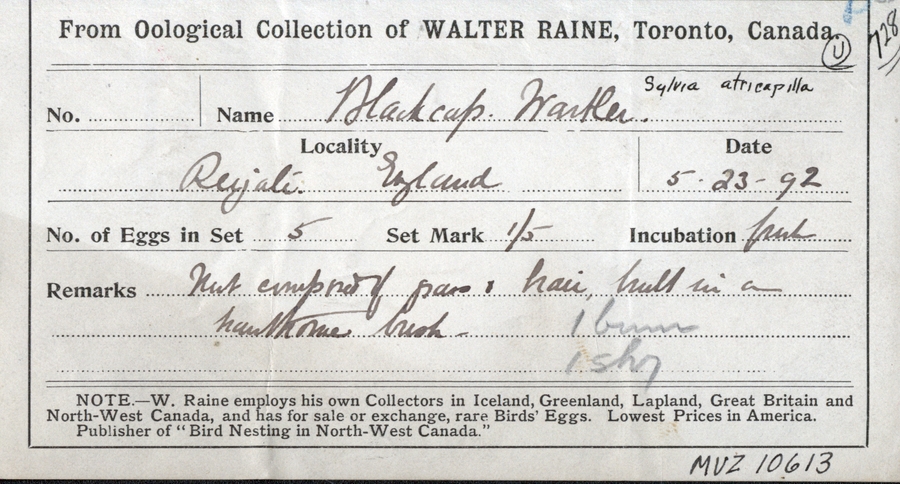 From Oological Collection of WALTER RAINE, Toronto, Canada.
U
728
No. Name Blackcap. Warbler. Sylvia atricapilla
Locality Date
England 5-23-92
No. of Eggs in Set 5 Set Mark 1/5 Incubation fresh
Remarks Nest composed of grass & hair, built in a
hawthorne bush -
NOTE.—W. Raine employs his own Collectors in Iceland, Greenland, Lapland, Great Britain and
North-West Canada, and has for sale or exchange, rare Birds' Eggs. Lowest Prices in America.
Publisher of "Bird Nesting in North-West Canada."
MVZ 10613